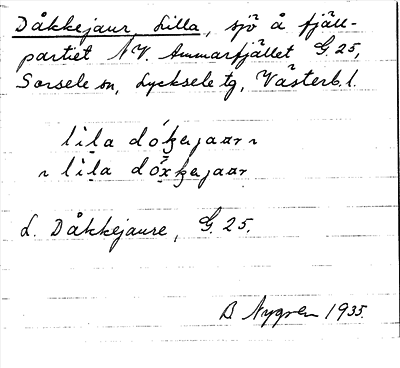 Dåkkejaur, Lilla, sjö å fjäll-
partiet NV. Ammarfjället G. 25,
Sorsele sn, Lycksele tg, Västerb. l.
lila
lila
L. Dåkkejaure, G. 25.
B Nygren 1935.